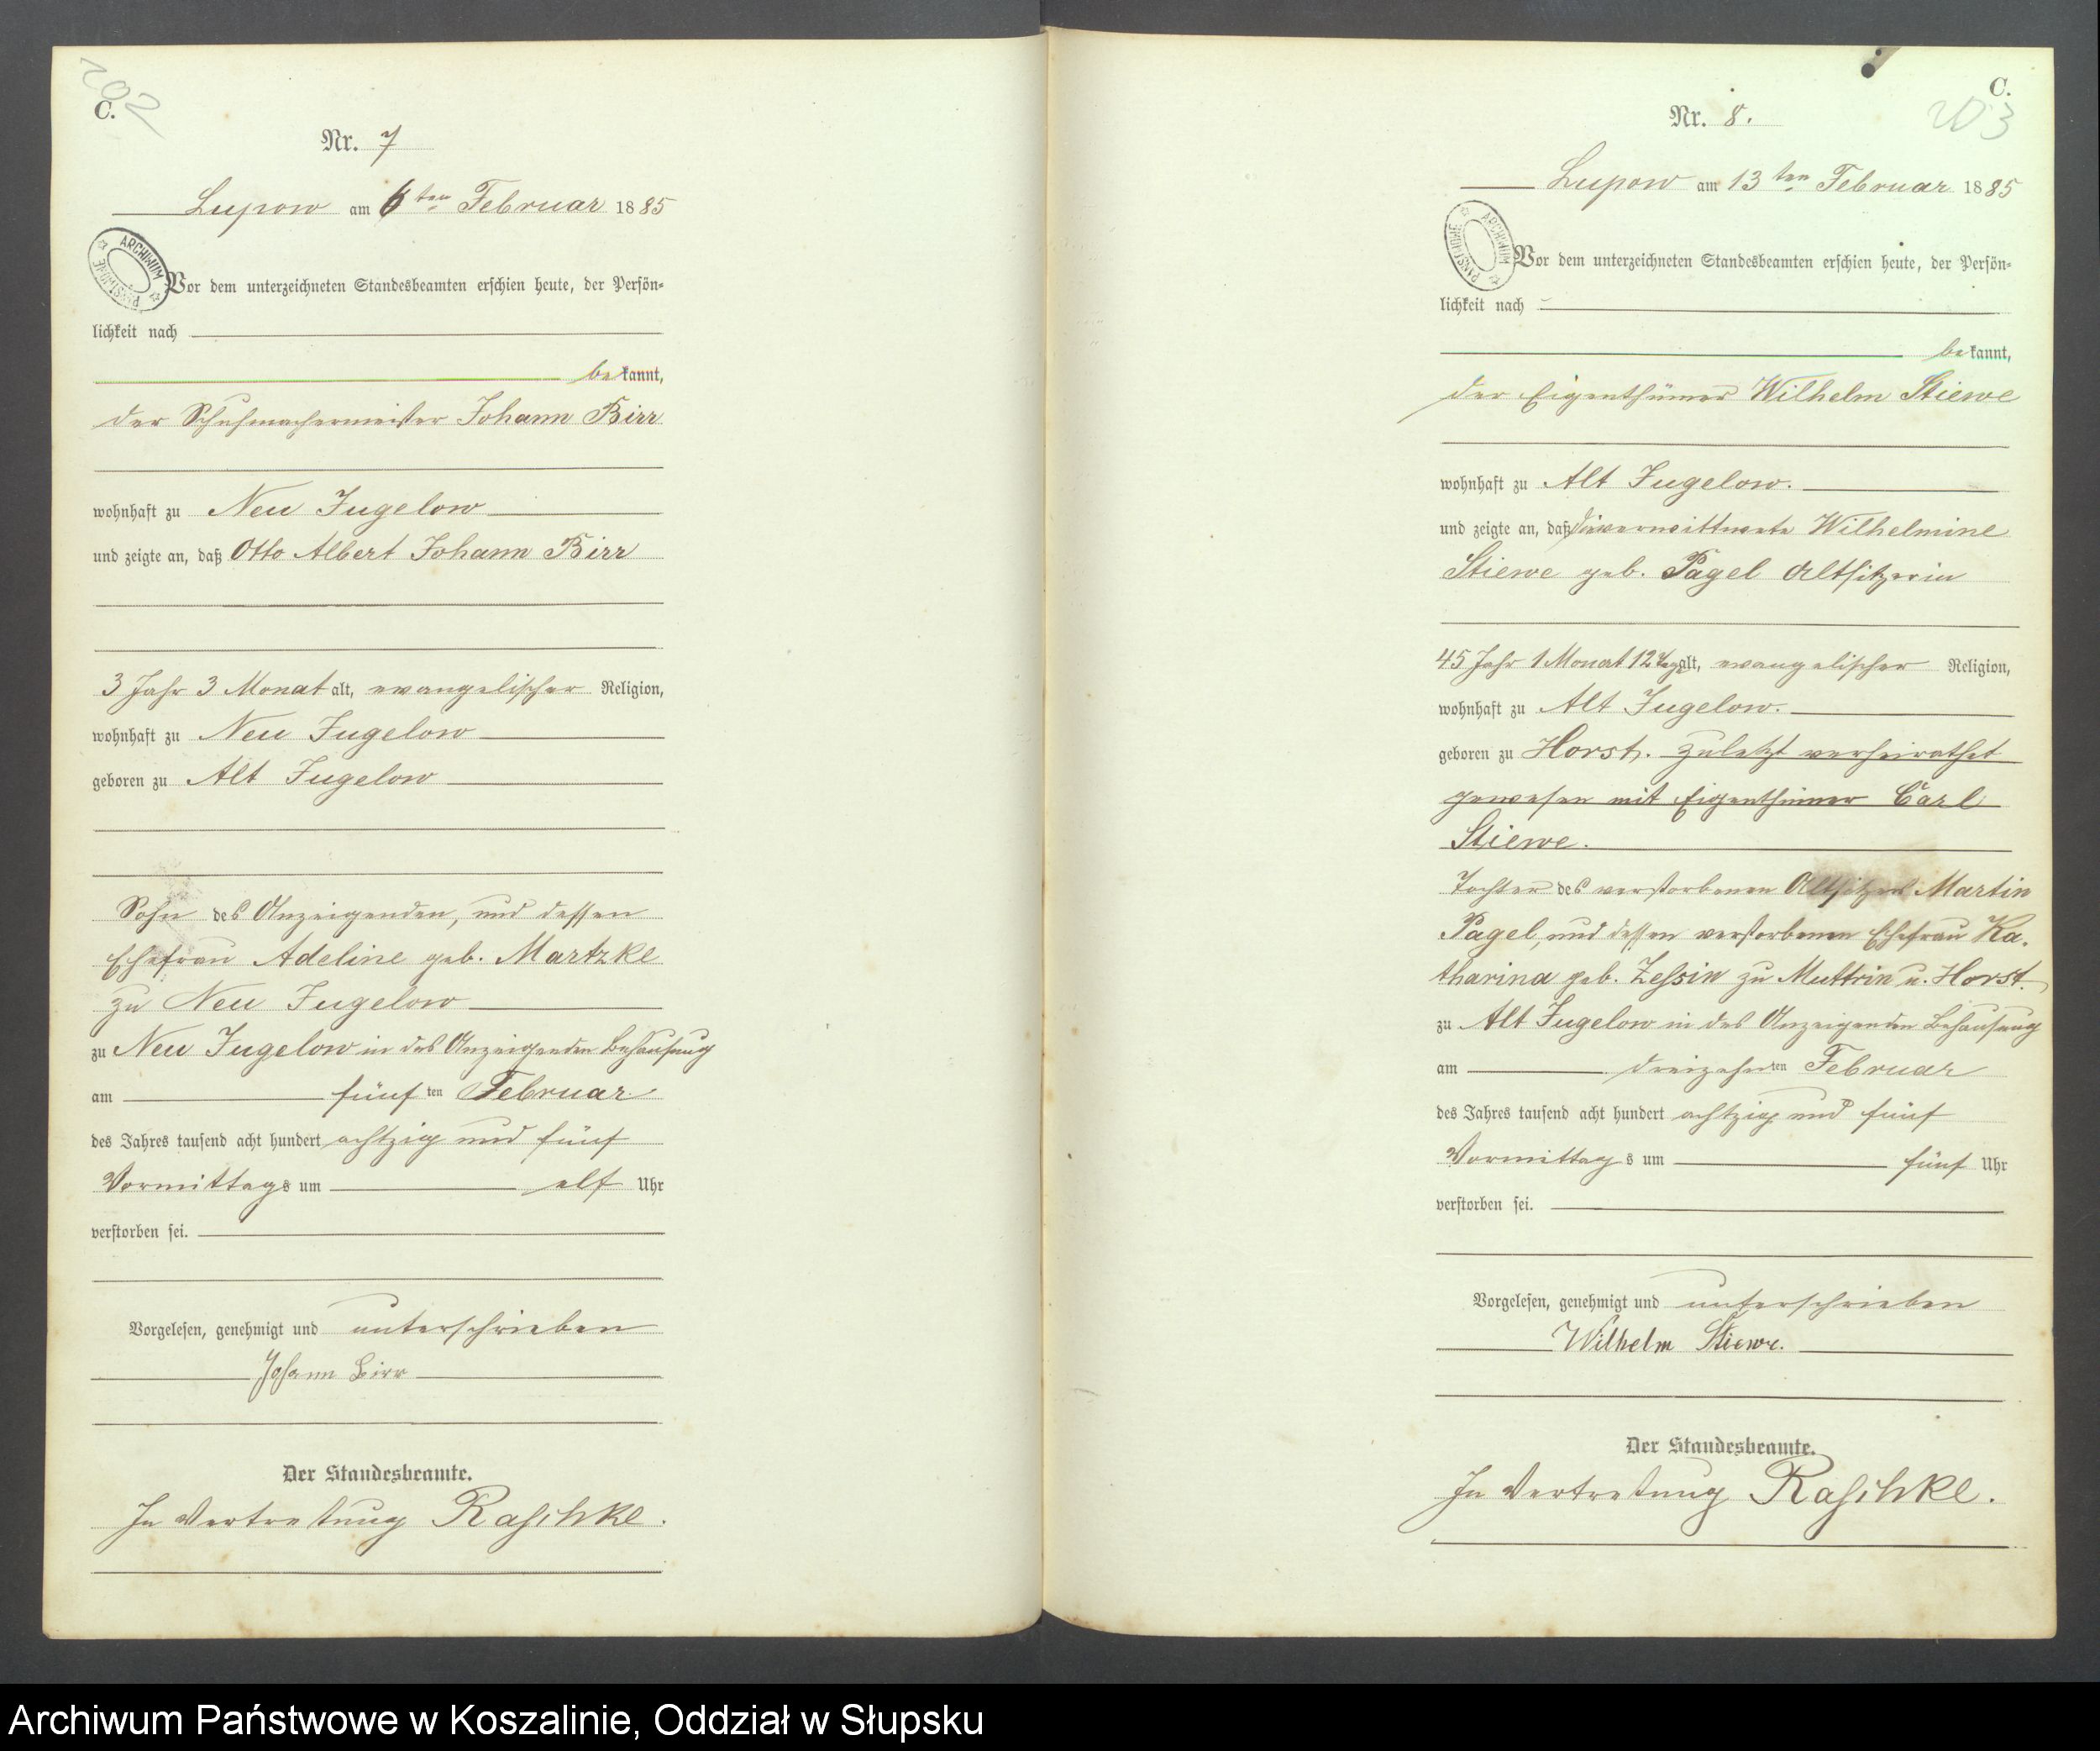 202
C.
Nr. 7
Lupow am 6ten Februar 1885
ARCHIWUM PAŃSTWOWE
Vor dem unterzeichneten Standesbeamten erschien heute, der Persön-
lichkeit nach
bekannt,
der Schuhmachermeister Johann Birr
wohnhaft zu Neu Jugelow
und zeigte an, daß Otto Albert Johann Birr
3 Jahr 3 Monat alt, evangelischer Religion,
wohnhaft zu Neu Jugelow
geboren zu Alt Jugelow
Sohn des Anzeigenden, und dessen
Ehefrau Adeline geb. Martzke
zu Neu Jugelow
zu Neu Jugelow in des Anzeigenden Behausung
am fünften Februar
des Jahres tausend acht hundert achtzig und fünf
Vormittags um elf Uhr
verstorben sei.
Vorgelesen, genehmigt und unterschrieben
Johann Birr
Der Standesbeamte.
In Vertretung Raschke.
C.
203
Nr. 8.
Lupow am 13ten Februar 1885
ARCHIWUM PAŃSTWOWE
Vor dem unterzeichneten Standesbeamten erschien heute, der Persön-
lichkeit nach
bekannt,
der Eigenthümer Wilhelm Stiewe
wohnhaft zu Alt Jugelow.
und zeigte an, daß die verwittwete Wilhelmine
Stiewe geb. Pagel Altsitzerin
45 Jahr 1 Monat 12 Tage alt, evangelischer Religion,
wohnhaft zu Alt Jugelow.
geboren zu Horst. zuletzt verheirathet
gewesen mit Eigenthümer Carl
Stiewe.
Tochter des verstorbenen Altsitzers Martin
Pagel, und dessen verstorbenen Ehefrau Ka-
tharina geb. Zessin zu Muttrin u. Horst.
zu Alt Jugelow in des Anzeigenden Behausung
am dreizehnten Februar
des Jahres tausend acht hundert achtzig und fünf
Vormittags um fünf Uhr
verstorben sei.
Vorgelesen, genehmigt und unterschrieben
Wilhelm Stiewe.
Der Standesbeamte.
In Vertretung Raschke.
Archiwum Państwowe w Koszalinie, Oddział w Słupsku